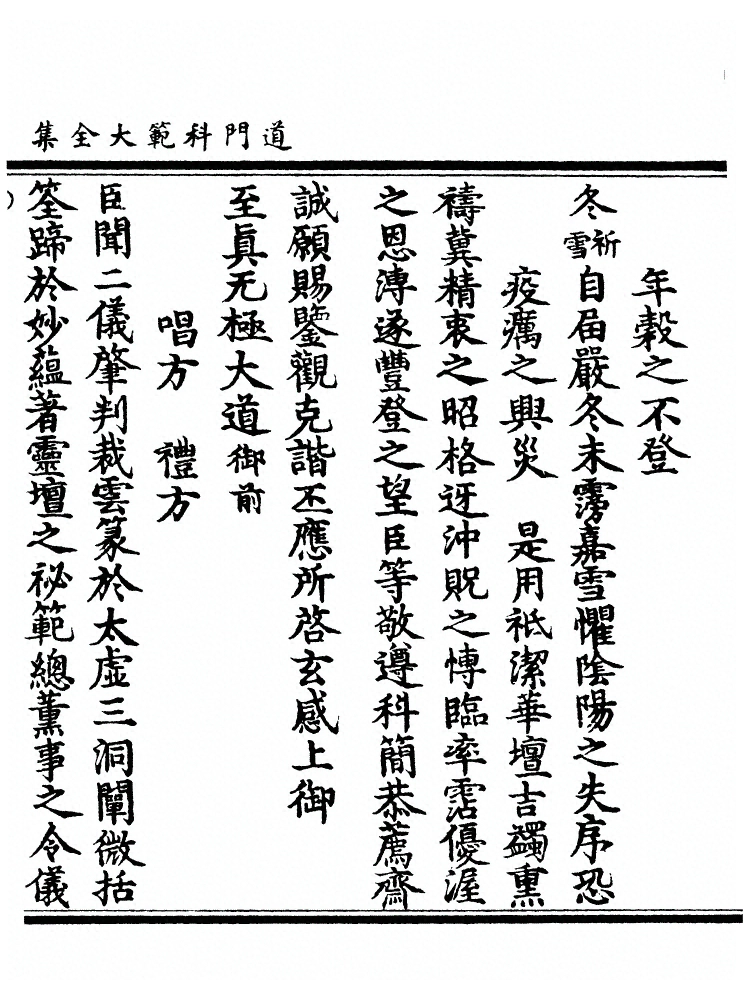 道門科範大全集
年穀之不登
冬祈雪自届嚴冬未霶嘉雪懼陰陽之失序恐
疫癘之興災 是用祗潔華壇吉蠲熏
禱冀精衷之昭格迓沖貺之愽臨率霑優渥
之恩溥遂豐登之望臣等敬遵科簡恭薦齋
誠願賜鑒觀克諧丕應所啓玄感上御
至眞无極大道御前
唱方 禮方
臣聞二儀肇判裁雲篆於太虚三洞闡微括
筌蹄於妙蘊著靈壇之祕範總薰事之令儀